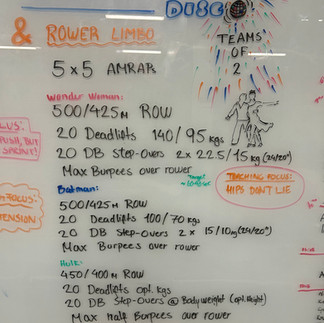 DISC
& ROWER LIMBO
TEAMS
OF
2
5 x 5 AMRAP
Wonder Woman:
500/425m ROW
20 Deadlifts 140/95 kgs
20 DB Step-Overs 2 x 22.5/15 kg (24/20")
Max Burpees over rower
Batman:
500/425m ROW
20 Deadlifts 100/70 kgs
20 DB Step-Overs 2 x 15/10 kg (24/20")
Max Burpees over rower
Hulk:
450/400m ROW
20 Deadlifts opt. kgs
20 DB Step-Overs @ Bodyweight (opt. Height)
Max Half Burpees over rower
TEACHING FOCUS:
HIPS DON'T LIE
PUSH, BUT
SPRINT!
FOCUS:
TENSION